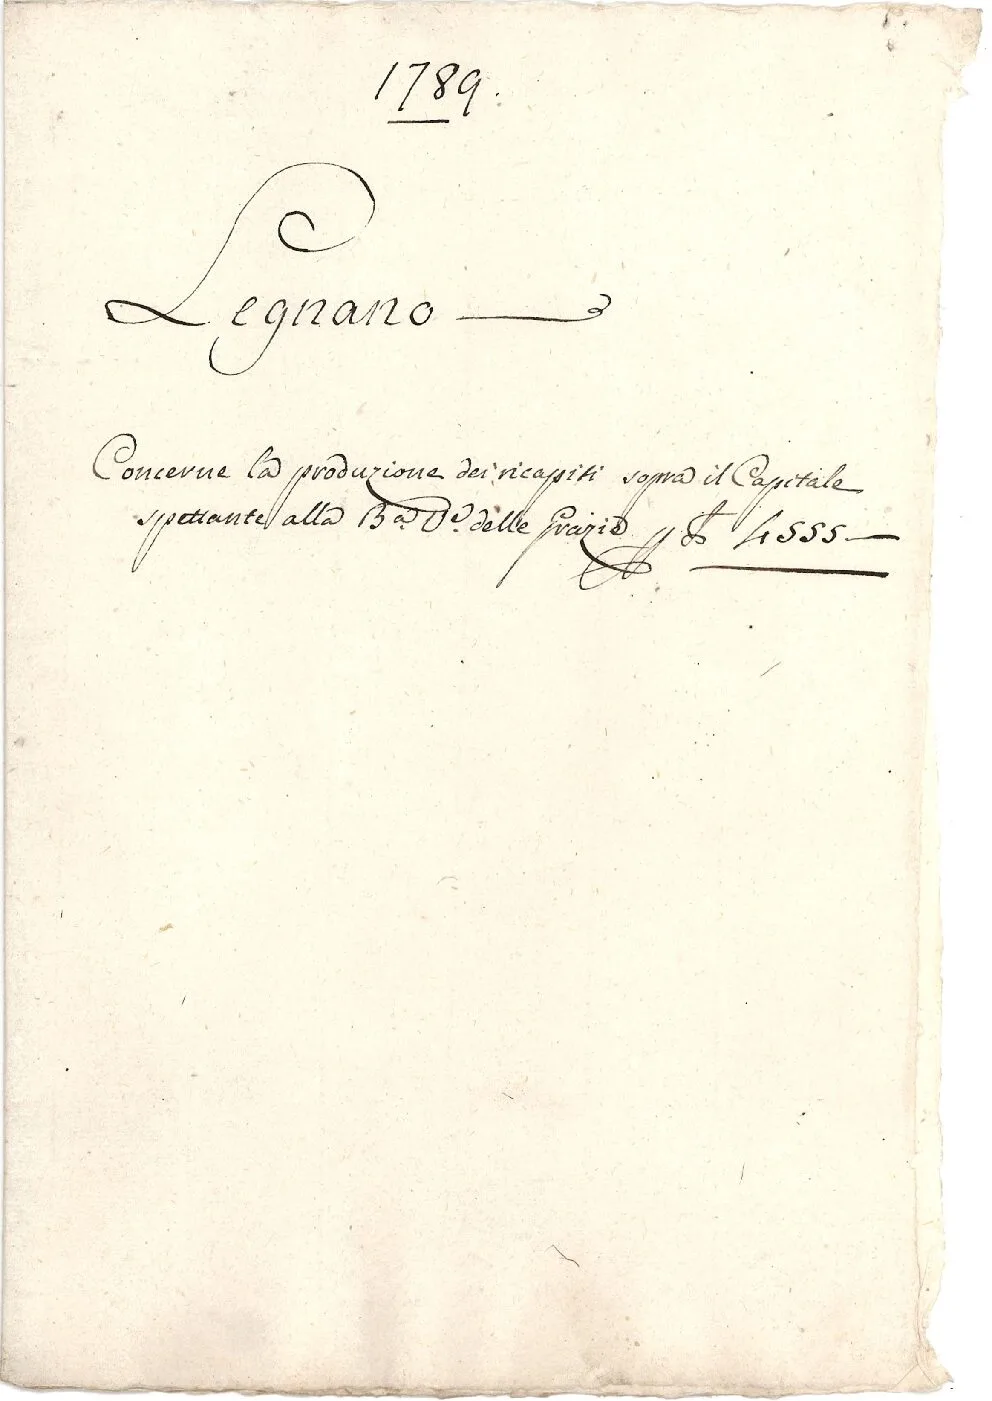 1789.
Legnano
Concerne la produzione dei ricapiti sopra il Capitale
spettante alla B.a V.e delle Grazie 4555